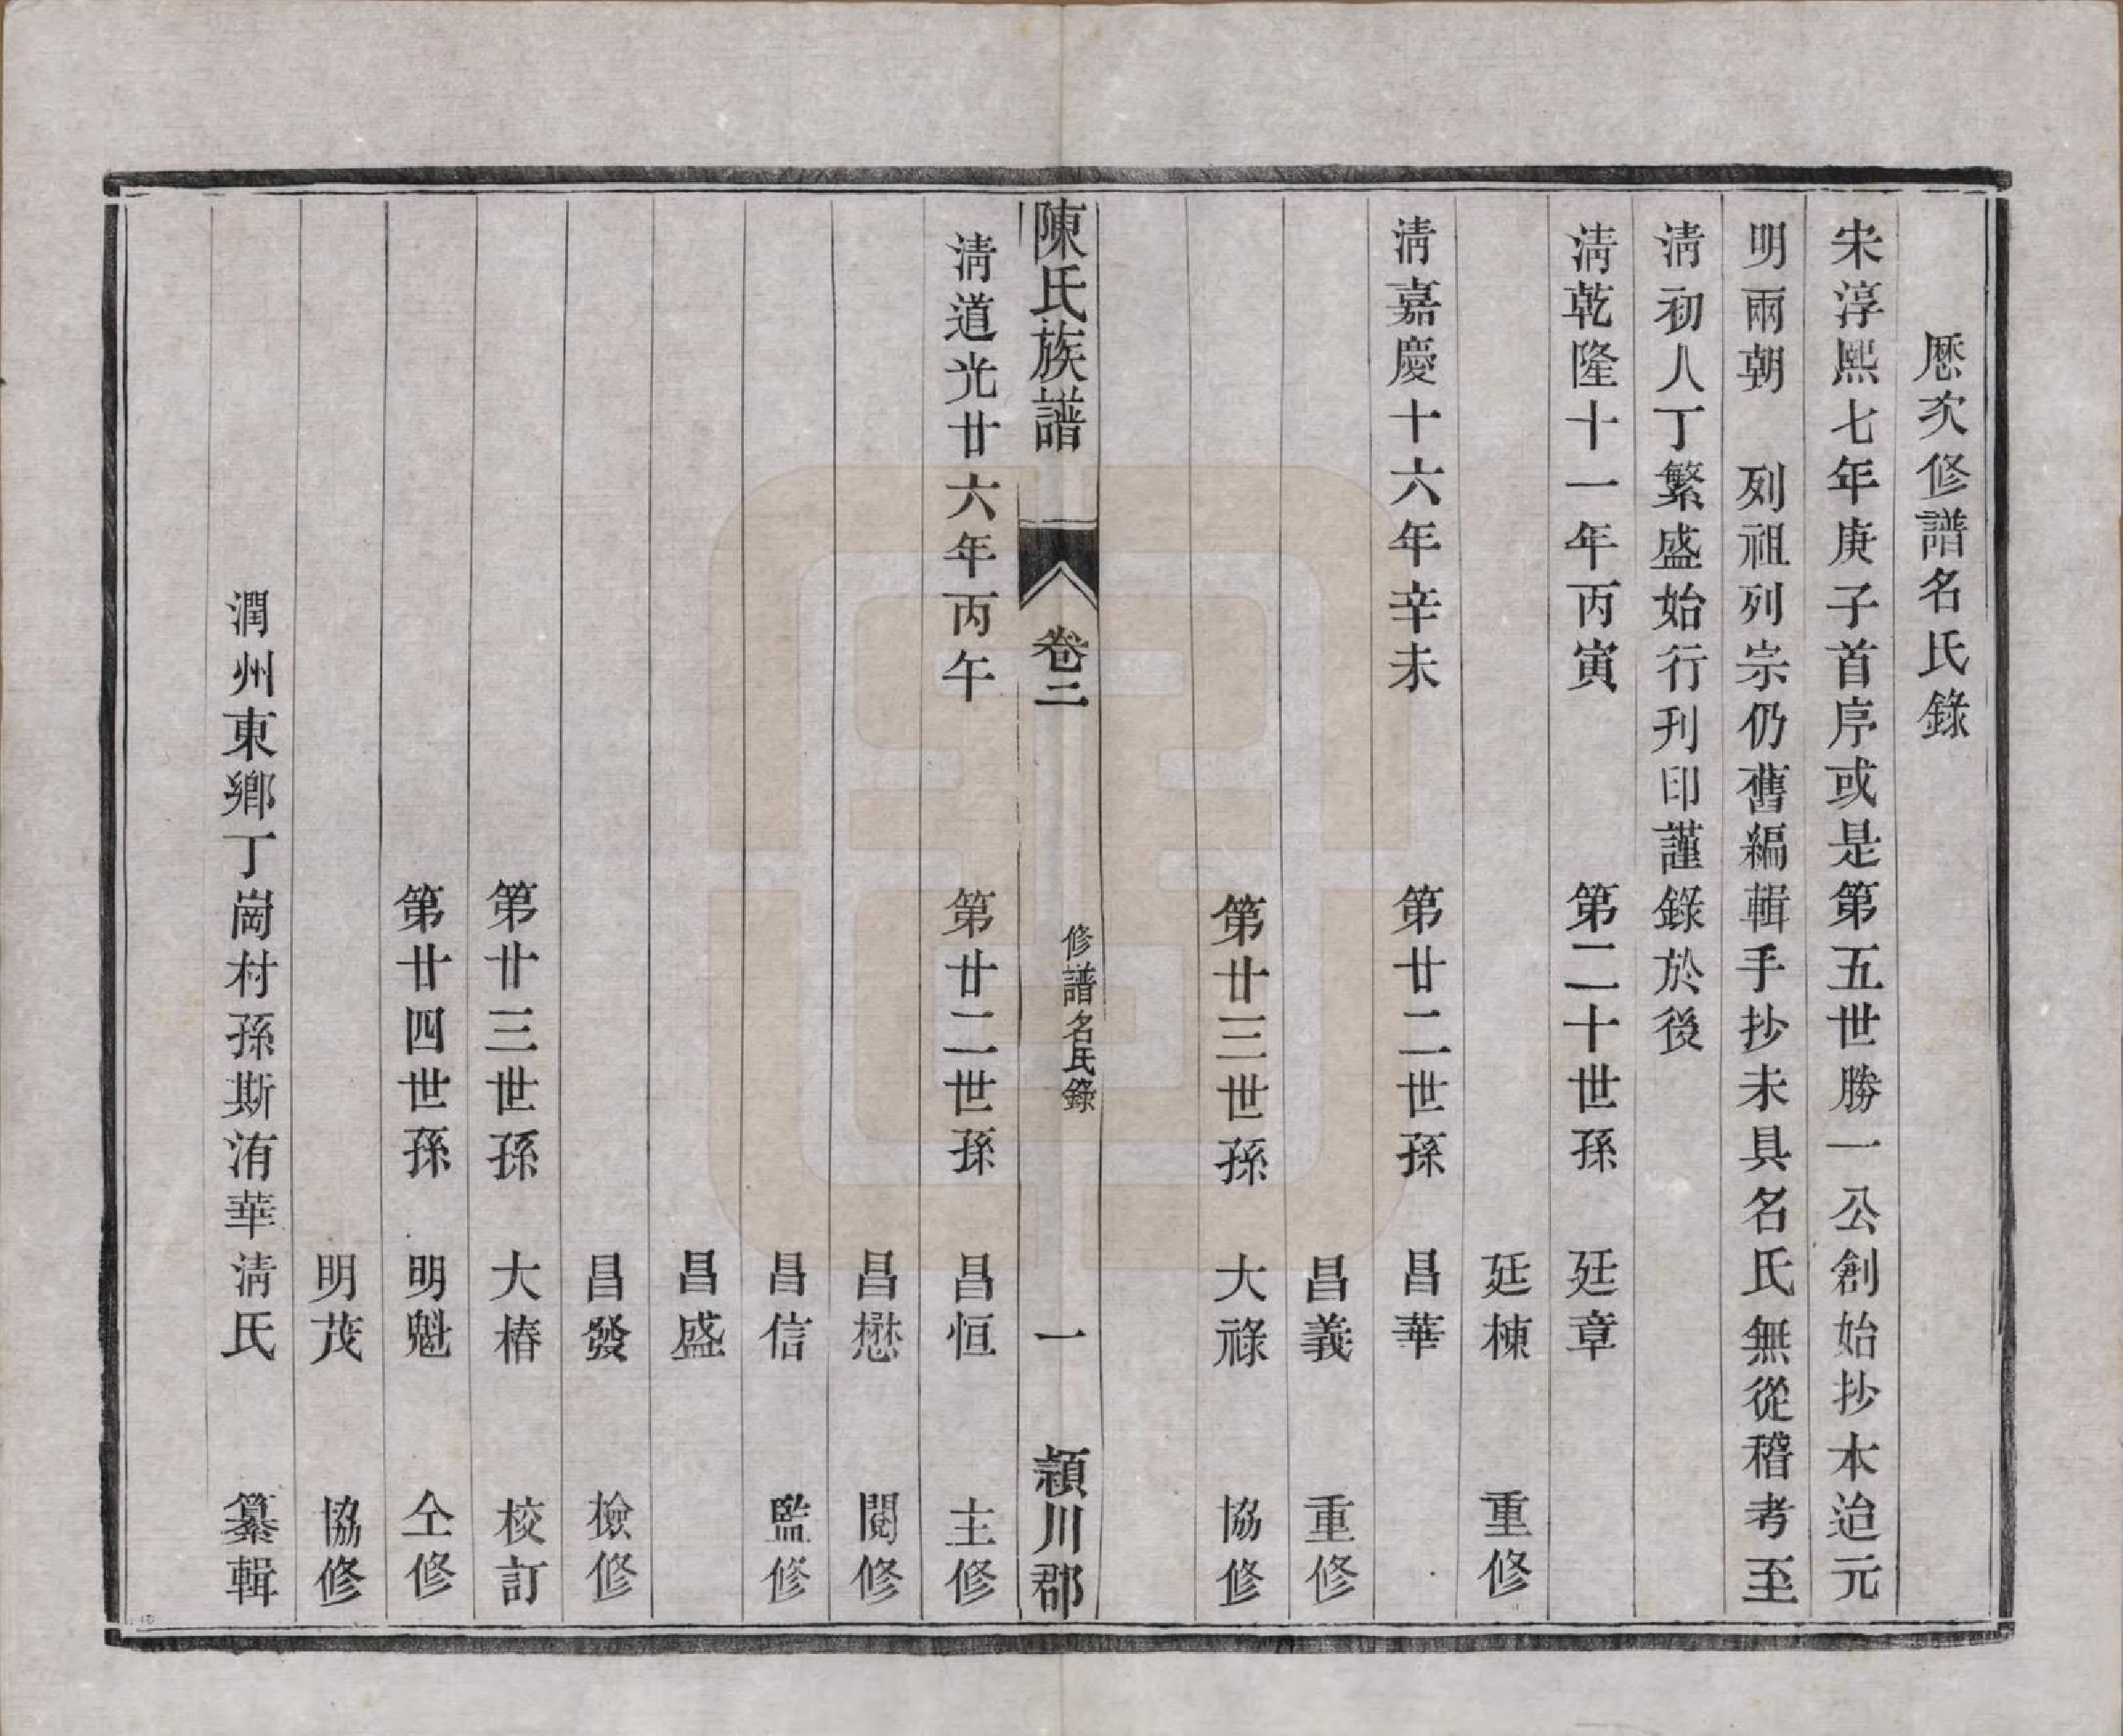 歷次修譜名氏錄
宋淳熙七年庚子首序或是第五世勝一公創始抄本迨元
明兩朝　列祖列宗仍舊編輯手抄未具名氏無從稽考至
淸初人丁繁盛始行刋印謹錄於後
淸乾隆十一年丙寅　第二十世孫　廷章
廷棟　重修
淸嘉慶十六年辛未　第廿二世孫　昌華
昌義　重修
第廿三世孫　大祿　協修
陳氏族譜　卷二　修譜名氏錄　一　潁川郡
淸道光廿六年丙午　第廿二世孫　昌恒　主修
昌懋　閱修
昌信　監修
昌盛
昌發　檢修
第廿三世孫　大椿　校訂
第廿四世孫　明魁　仝修
明茂　協修
潤州東鄉丁崗村孫斯洧華淸氏　纂輯